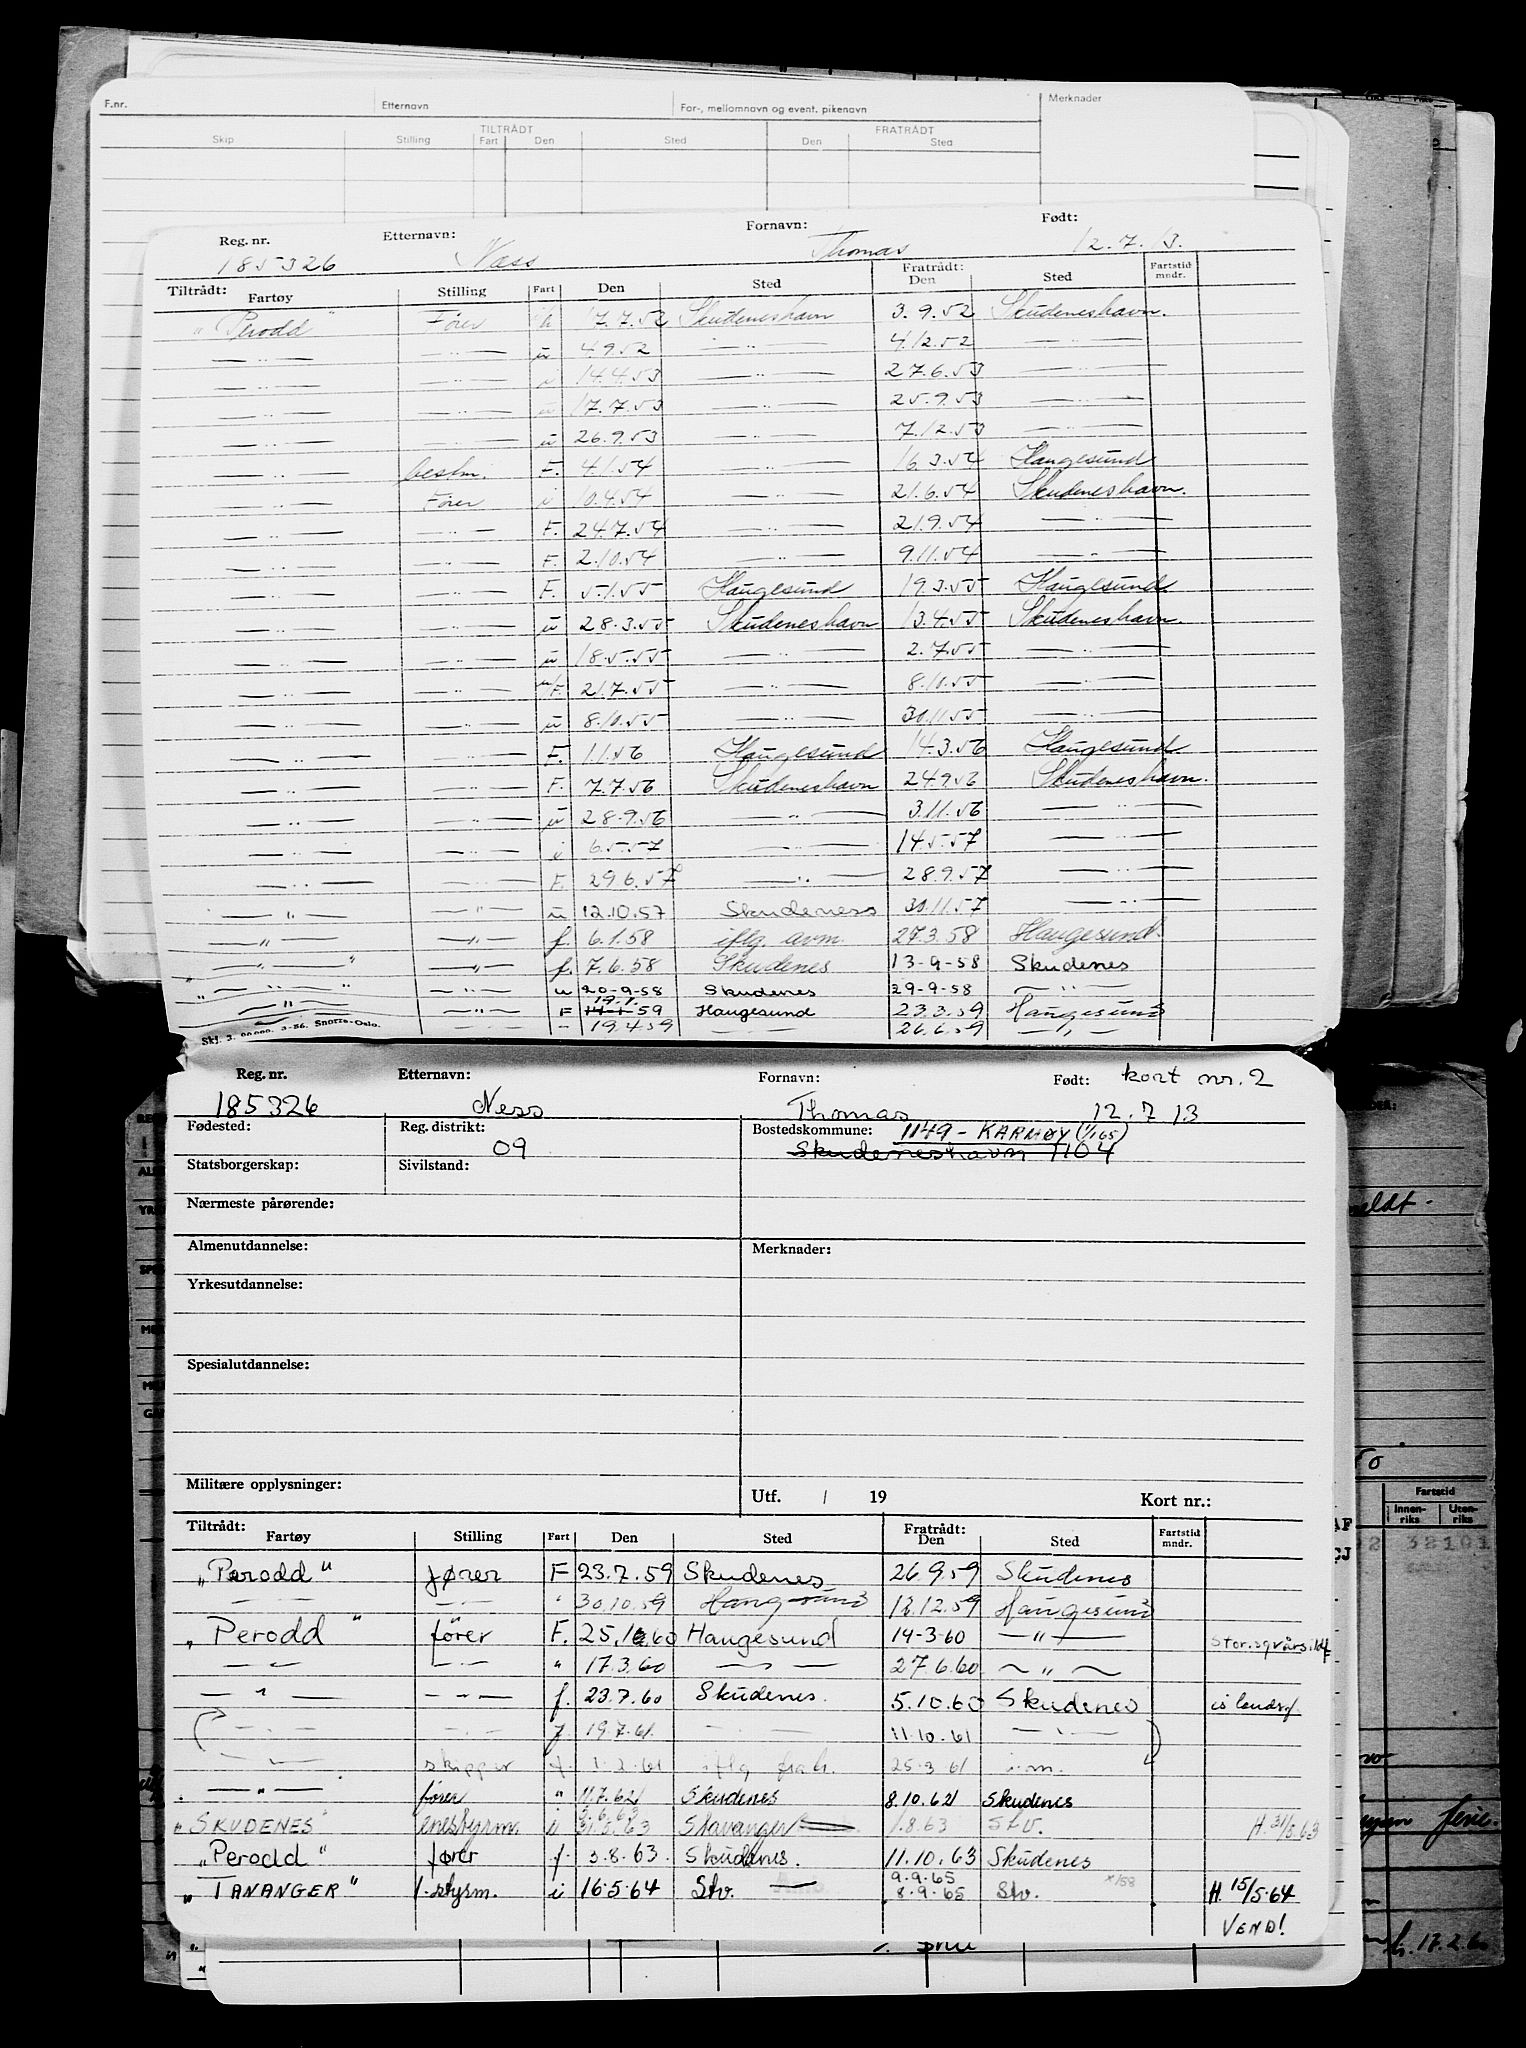 F.nr. Etternavn For-, mellomnavn og event. pikenavn Merknader
TILTRÅDT FRATRÅDT
Skip Stilling Fart Den Sted Den Sted
Reg. nr. Etternavn: Fornavn: Født:
185326 Næss Thomas 12.7.13.
Tiltrådt: Fratrådt:
Fartøy Stilling Fart Den Sted Den Sted Fartstid mndr.
"Perodd" Fører 17.7.52 Skudeneshavn 3.9.52 Skudeneshavn.
— " — — " — u 4.9.52 — " — 4.12.52 — " —
— " — — " — i 14.4.53 — " — 27.6.53 — " —
— " — — " — u 17.7.53 — " — 25.9.53 — " —
— " — — " — u 26.9.53 — " — 7.12.53 — " —
— " — bestm. F. 4.1.54 — " — 16.3.54 Haugesund
— " — Fører i 10.4.54 — " — 21.6.54 Skudeneshavn.
— " — — " — F. 24.7.54 — " — 21.9.54 — " —
— " — — " — F. 2.10.54 — " — 9.11.54 — " —
— " — — " — F. 5.1.55 Haugesund 19.3.55 Haugesund
— " — — " — u 28.3.55 Skudeneshavn 13.4.55 Skudeneshavn.
— " — — " — u 18.5.55 — " — 2.7.55 — " —
— " — — " — u/F. 21.7.55 — " — 8.10.55 — " —
— " — — " — u 8.10.55 — " — 30.11.55 — " —
— " — — " — F. 1.1.56 Haugesund 14.3.56 Haugesund
— " — — " — F. 7.7.56 Skudeneshavn 24.9.56 Skudeneshavn.
— " — — " — u 28.9.56 — " — 3.11.56 — " —
— " — — " — i 6.5.57 — " — 14.5.57 — " —
— " — — " — F. 29.6.57 — " — 28.9.57 — " —
— " — — " — u 12.10.57 Skudeness 30.11.57 — " —
— " — — " — f. 6.1.58 iflg. avm. 27.3.58 Haugesund.
" — " — " — " — f. 7.6.58 Skudenes 13-9-58 Skudenes
" — " — " — " — u 20-9-58 Skudenes 29-9-58 — " —
— " — — " — F 19.1. 59 Haugesund 23.3.59 Haugesund
— " — — " — " 19.4.59 — " — 26.6.59 — " —
Skj. 3. 3-56. Snorre-Oslo.
Reg. nr. Etternavn: Fornavn: Født: kort nr. 2
185326 Ness Thomas 12.7.13
Fødested: Reg. distrikt: Bostedskommune: 1149 - KARMØY (1/1 65)
09 Skudeneshavn 1104
Statsborgerskap: Sivilstand:
Nærmeste pårørende:
Almenutdannelse: Merknader:
Yrkesutdannelse:
Spesialutdannelse:
Militære opplysninger:
Utf. / 19 Kort nr.:
Tiltrådt: Fratrådt:
Fartøy Stilling Fart Den Sted Den Sted Fartstid mndr.
"Perodd" fører F 23.7.59 Skudenes 26.9.59 Skudenes
— " — — " — " 30.10.59 Haugesund 12.59 Haugesund
"Perodd" fører F. 25. 60 Haugesund 14-3-60 — " —
— " — — " — " 17.3.60 — " — 27.6.60 — " —
— " — — " — f. 23.7.60 Skudenes. 5.10.60 Skudenes islandsf
— " — — " — f. 19.7.61 — " — 11.10.61 — " —
— " — skipper f. 1.2.61 iflg 25.3.61 i.m.
— " — fører " 11.7.62 Skudenes 8.10.62 Skudenes
"SKUDENES" enestyrm. i 3.6.63 Stavanger 1.8.63 Stv. H. 31/5.63
"Perodd" fører f. 3.8.63. Skudenes. 11.10.63 Skudenes
"TANANGER" 1. styrm. i 16.5.64 Stv. 9.9.65 Stv. H. 15/5.64
8.9.65
VEND!
Fartstid
Innen-riks Uten-riks
h. 17.2.6